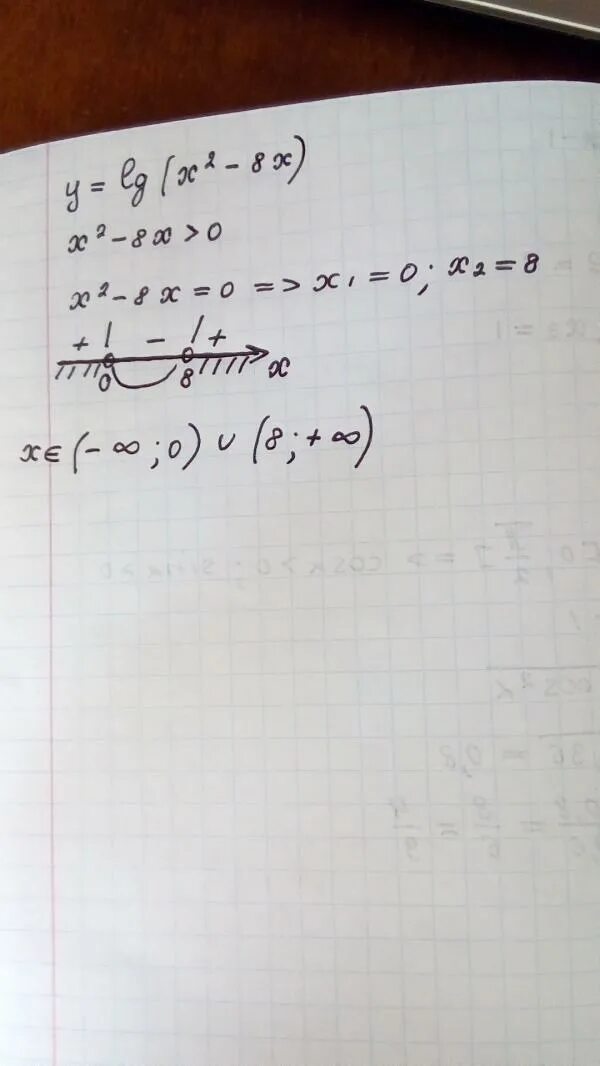 y = lg(x² - 8x)
x² - 8x > 0
x² - 8x = 0 => x₁ = 0; x₂ = 8
+ - +
0 8 x
x ∈ (-∞; 0) ∪ (8; +∞)